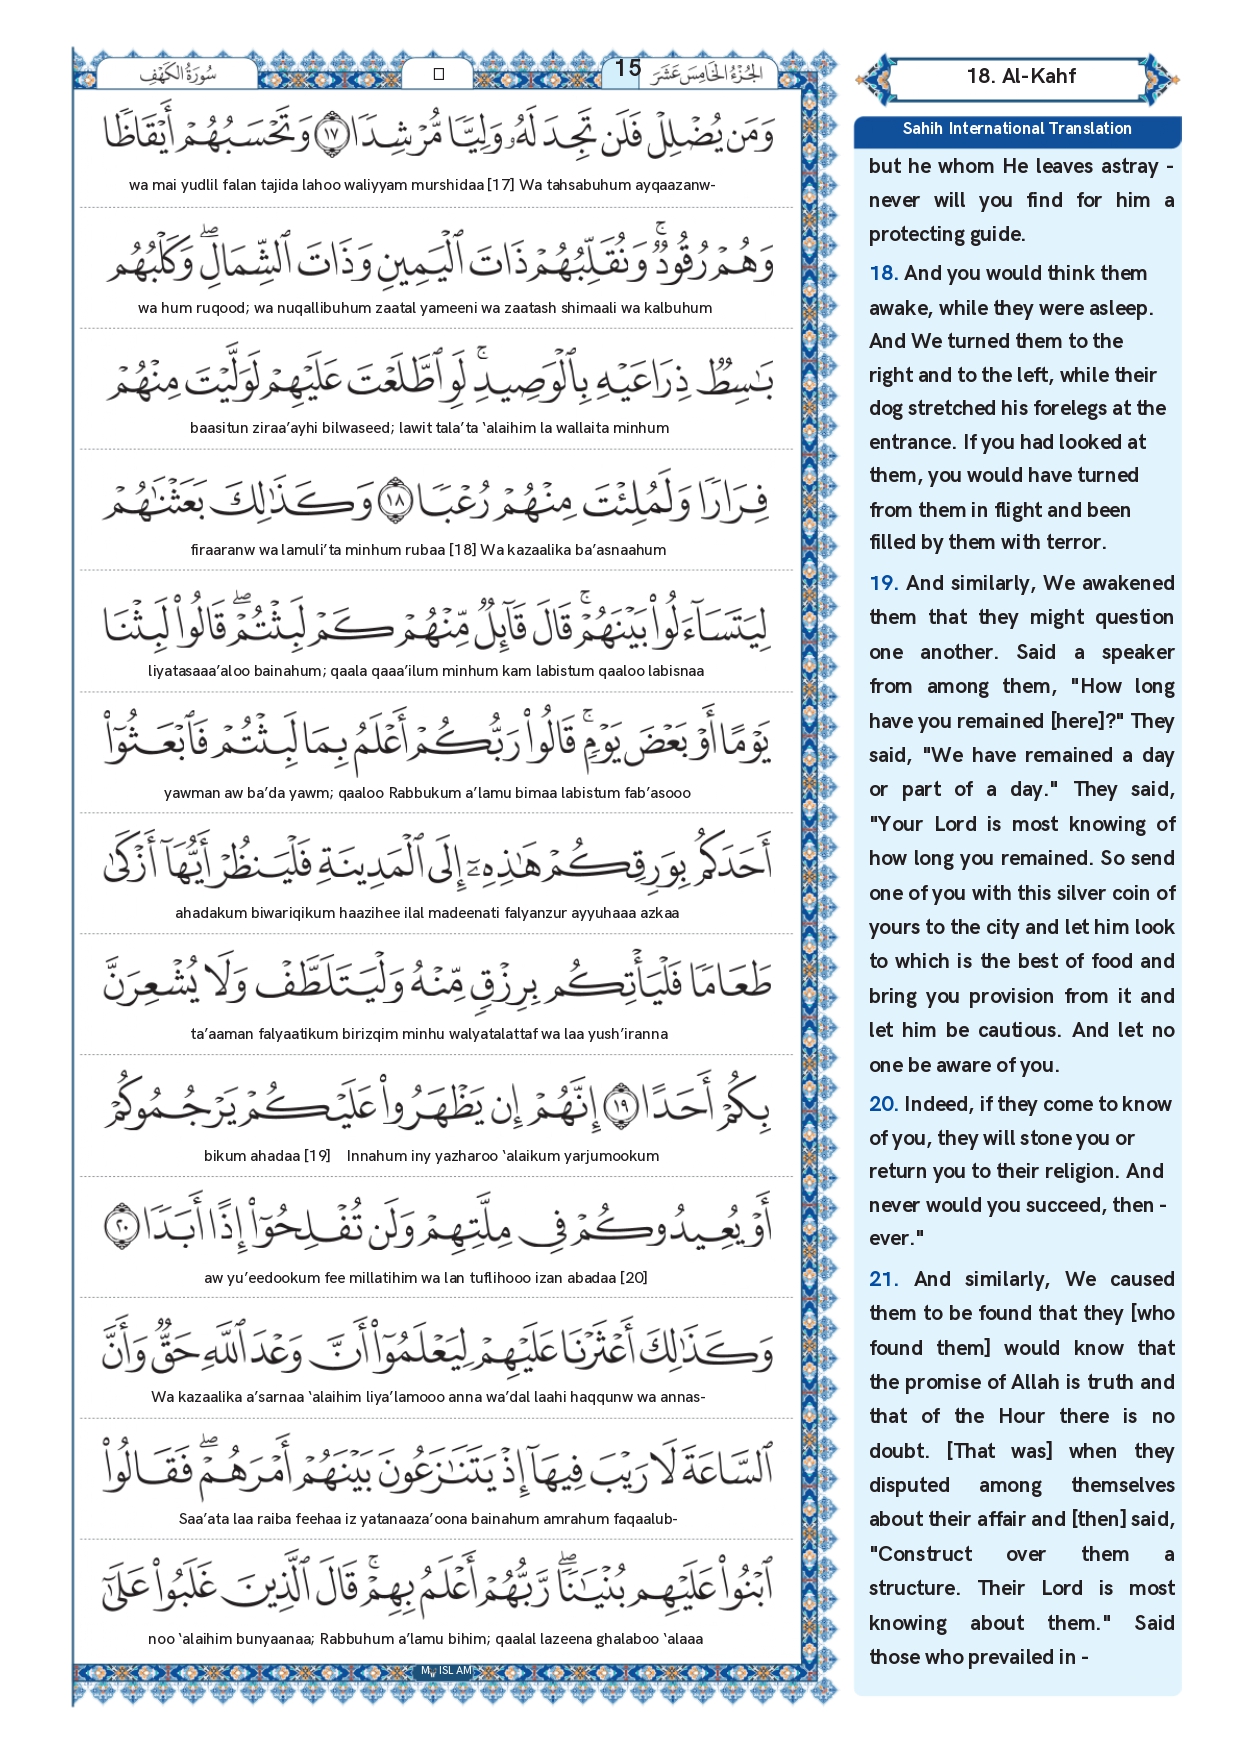 سُورَةُ الكَهْفِ
□
15 الجُزْءُ الخَامِسَ عَشَرَ
وَمَن يُضْلِلْ فَلَن تَجِدَ لَهُۥ وَلِيًّا مُّرْشِدًا ١٧ وَتَحْسَبُهُمْ أَيْقَاظًا
wa mai yudlil falan tajida lahoo waliyyam murshidaa [17] Wa tahsabuhum ayqaazanw-
وَهُمْ رُقُودٌ ۚ وَنُقَلِّبُهُمْ ذَاتَ ٱلْيَمِينِ وَذَاتَ ٱلشِّمَالِ ۖ وَكَلْبُهُم
wa hum ruqood; wa nuqallibuhum zaatal yameeni wa zaatash shimaali wa kalbuhum
بَـٰسِطٌ ذِرَاعَيْهِ بِٱلْوَصِيدِ ۚ لَوِ ٱطَّلَعْتَ عَلَيْهِمْ لَوَلَّيْتَ مِنْهُمْ
baasitun ziraa’ayhi bilwaseed; lawit tala’ta ‘alaihim la wallaita minhum
فِرَارًا وَلَمُلِئْتَ مِنْهُمْ رُعْبًا ١٨ وَكَذَٰلِكَ بَعَثْنَـٰهُمْ
firaaranw wa lamuli’ta minhum rubaa [18] Wa kazaalika ba’asnaahum
لِيَتَسَآءَلُوا۟ بَيْنَهُمْ ۚ قَالَ قَآئِلٌ مِّنْهُمْ كَمْ لَبِثْتُمْ ۖ قَالُوا۟ لَبِثْنَا
liyatasaaa’aloo bainahum; qaala qaaa’ilum minhum kam labistum qaaloo labisnaa
يَوْمًا أَوْ بَعْضَ يَوْمٍ ۚ قَالُوا۟ رَبُّكُمْ أَعْلَمُ بِمَا لَبِثْتُمْ فَٱبْعَثُوٓا۟
yawman aw ba’da yawm; qaaloo Rabbukum a’lamu bimaa labistum fab’asooo
أَحَدَكُم بِوَرِقِكُمْ هَـٰذِهِۦٓ إِلَى ٱلْمَدِينَةِ فَلْيَنظُرْ أَيُّهَآ أَزْكَىٰ
ahadakum biwariqikum haazihee ilal madeenati falyanzur ayyuhaaa azkaa
طَعَامًا فَلْيَأْتِكُم بِرِزْقٍ مِّنْهُ وَلْيَتَلَطَّفْ وَلَا يُشْعِرَنَّ
ta’aaman falyaatikum birizqim minhu walyatalattaf wa laa yush’iranna
بِكُمْ أَحَدًا ١٩ إِنَّهُمْ إِن يَظْهَرُوا۟ عَلَيْكُمْ يَرْجُمُوكُمْ
bikum ahadaa [19] Innahum iny yazharoo ‘alaikum yarjumookum
أَوْ يُعِيدُوكُمْ فِى مِلَّتِهِمْ وَلَن تُفْلِحُوٓا۟ إِذًا أَبَدًا ٢٠
aw yu’eedookum fee millatihim wa lan tuflihooo izan abadaa [20]
وَكَذَٰلِكَ أَعْثَرْنَا عَلَيْهِمْ لِيَعْلَمُوٓا۟ أَنَّ وَعْدَ ٱللَّهِ حَقٌّ وَأَنَّ
Wa kazaalika a’sarnaa ‘alaihim liya’lamooo anna wa’dal laahi haqqunw wa annas-
ٱلسَّاعَةَ لَا رَيْبَ فِيهَآ إِذْ يَتَنَـٰزَعُونَ بَيْنَهُمْ أَمْرَهُمْ ۖ فَقَالُوا۟
Saa’ata laa raiba feehaa iz yatanaaza’oona bainahum amrahum faqaalub-
ٱبْنُوا۟ عَلَيْهِم بُنْيَـٰنًا ۖ رَّبُّهُمْ أَعْلَمُ بِهِمْ ۚ قَالَ ٱلَّذِينَ غَلَبُوا۟ عَلَىٰٓ
noo ‘alaihim bunyaanaa; Rabbuhum a’lamu bihim; qaalal lazeena ghalaboo ‘alaaa
18. Al-Kahf
Sahih International Translation
but he whom He leaves astray -
never will you find for him a
protecting guide.
18. And you would think them
awake, while they were asleep.
And We turned them to the
right and to the left, while their
dog stretched his forelegs at the
entrance. If you had looked at
them, you would have turned
from them in flight and been
filled by them with terror.
19. And similarly, We awakened
them that they might question
one another. Said a speaker
from among them, "How long
have you remained [here]?" They
said, "We have remained a day
or part of a day." They said,
"Your Lord is most knowing of
how long you remained. So send
one of you with this silver coin of
yours to the city and let him look
to which is the best of food and
bring you provision from it and
let him be cautious. And let no
one be aware of you.
20. Indeed, if they come to know
of you, they will stone you or
return you to their religion. And
never would you succeed, then -
ever."
21. And similarly, We caused
them to be found that they [who
found them] would know that
the promise of Allah is truth and
that of the Hour there is no
doubt. [That was] when they
disputed among themselves
about their affair and [then] said,
"Construct over them a
structure. Their Lord is most
knowing about them." Said
those who prevailed in -